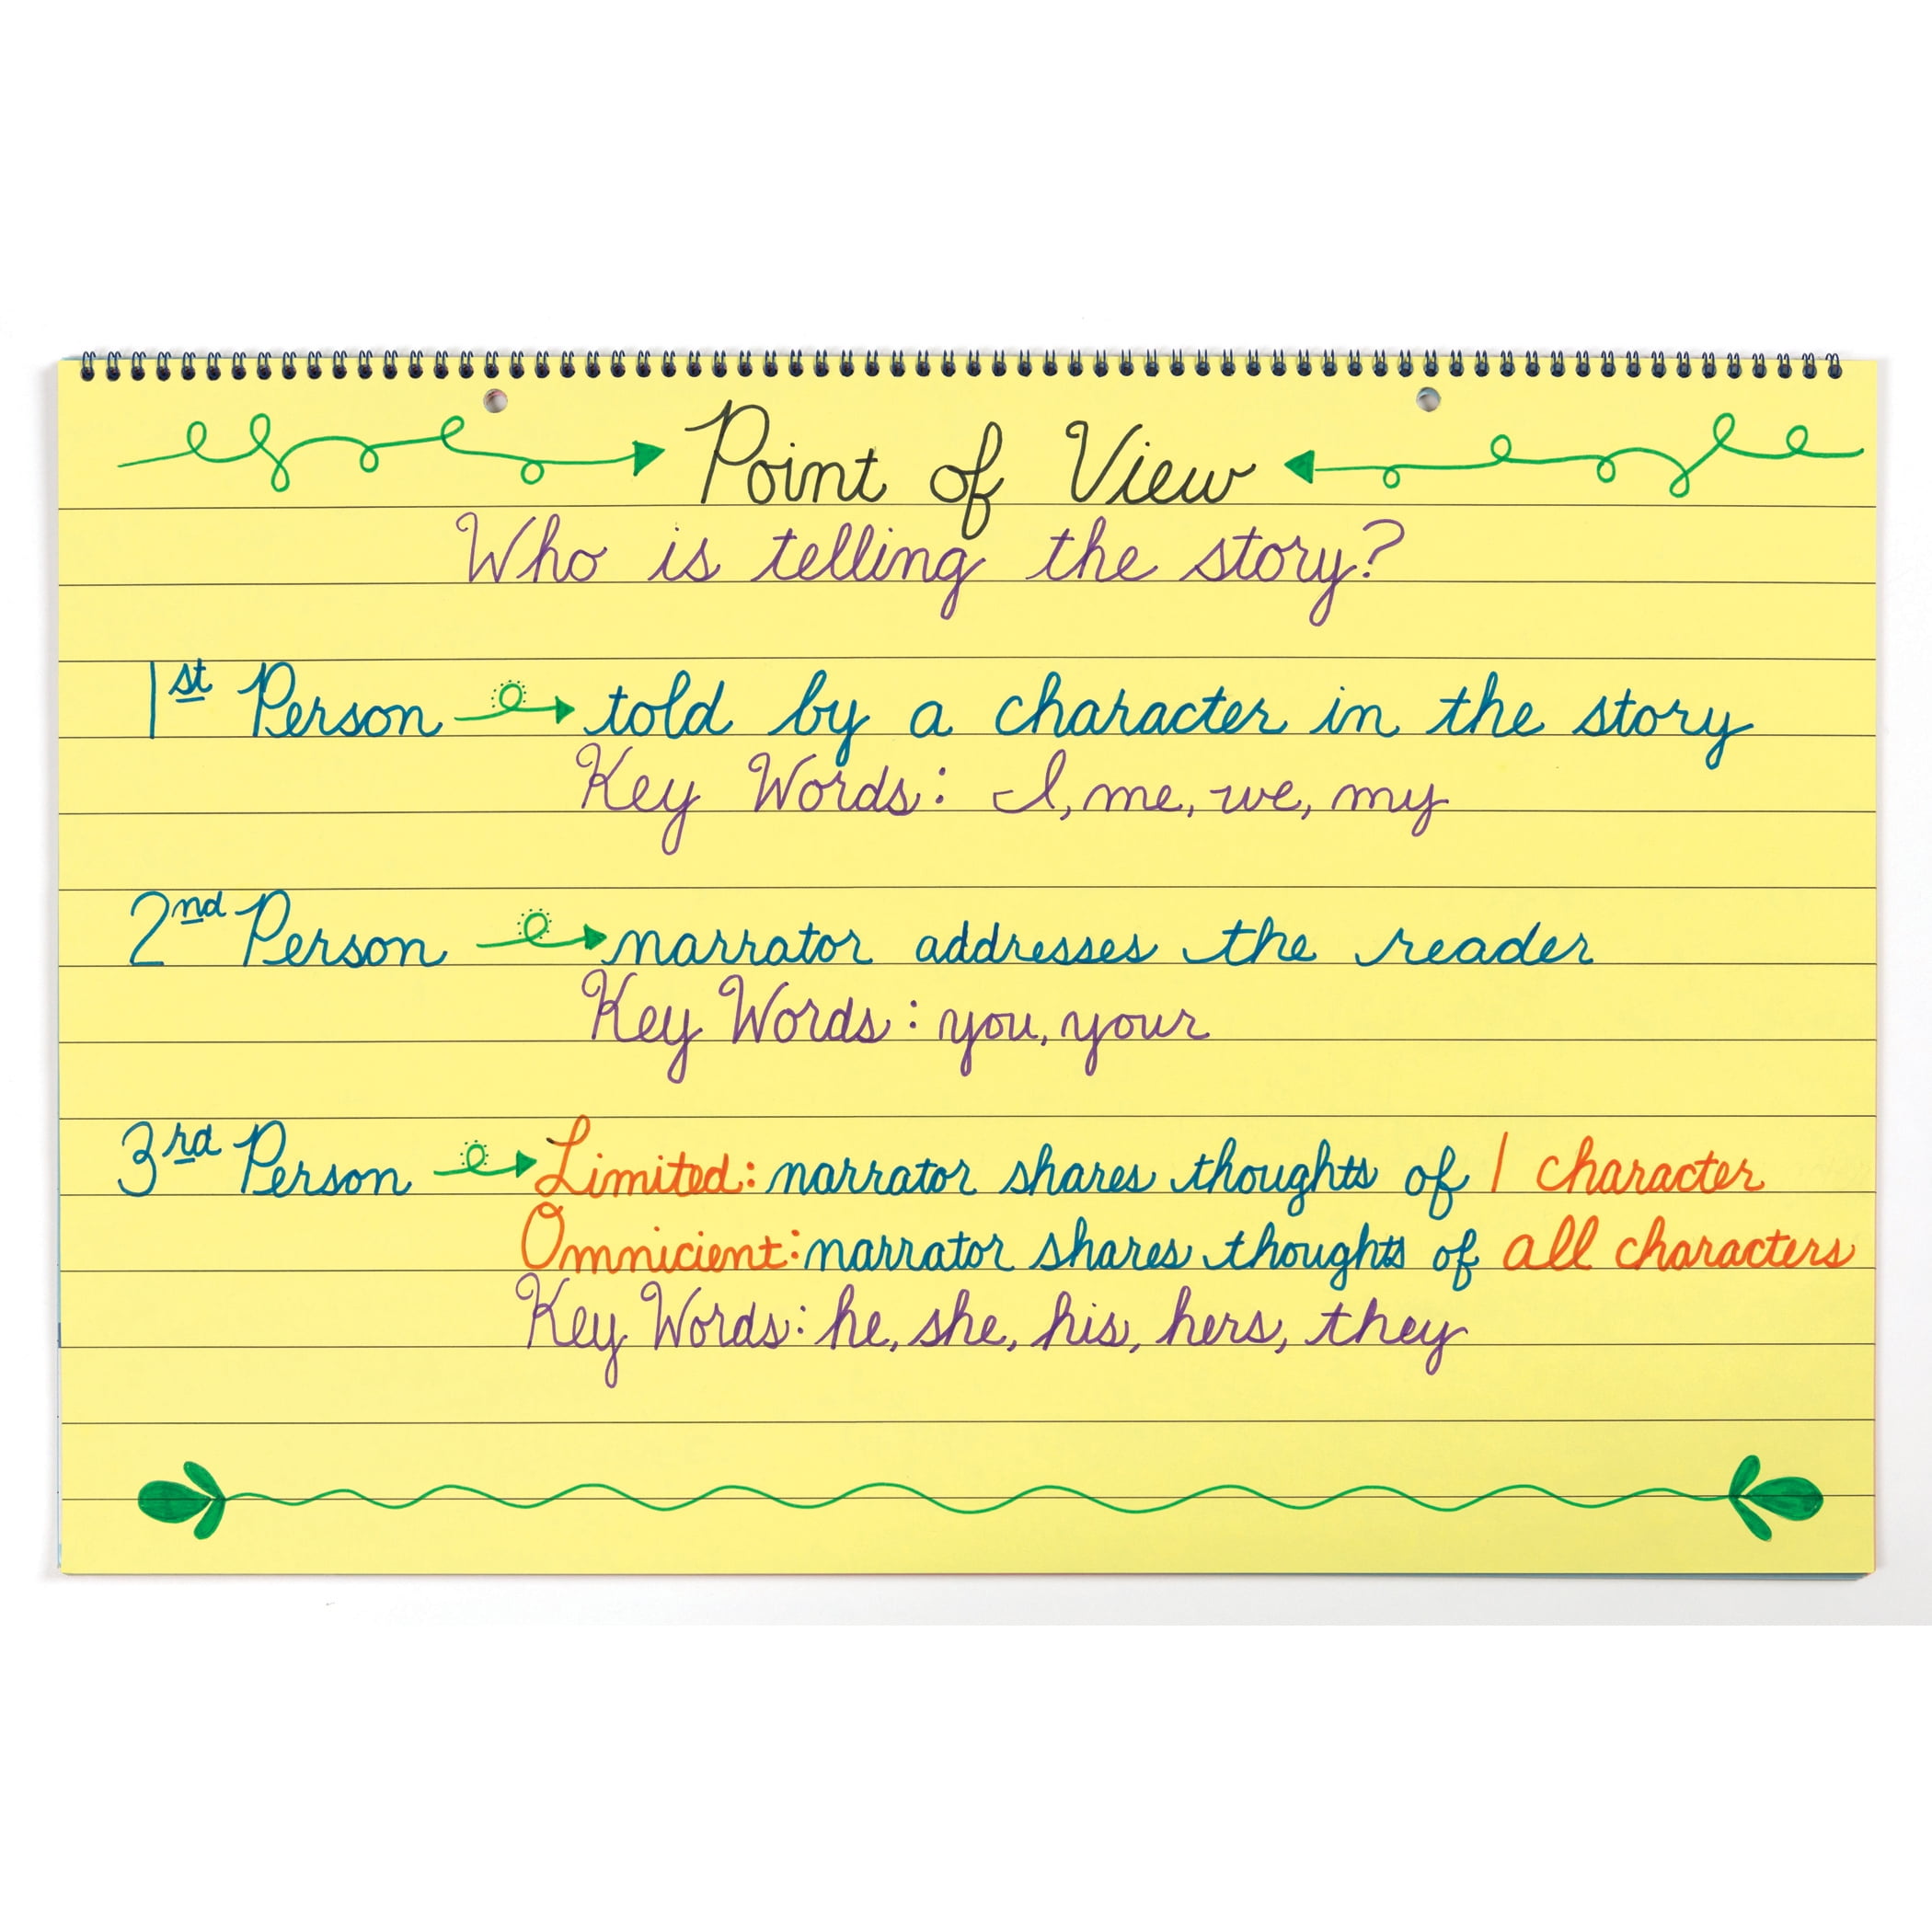 Point of View
Who is telling the story?
1st Person told by a character in the story
Key Words: I, me, we, my
2nd Person narrator addresses the reader
Key Words: you, your
3rd Person Limited: narrator shares thoughts of 1 character
Omnicient: narrator shares thoughts of all characters
Key Words: he, she, his, hers, they